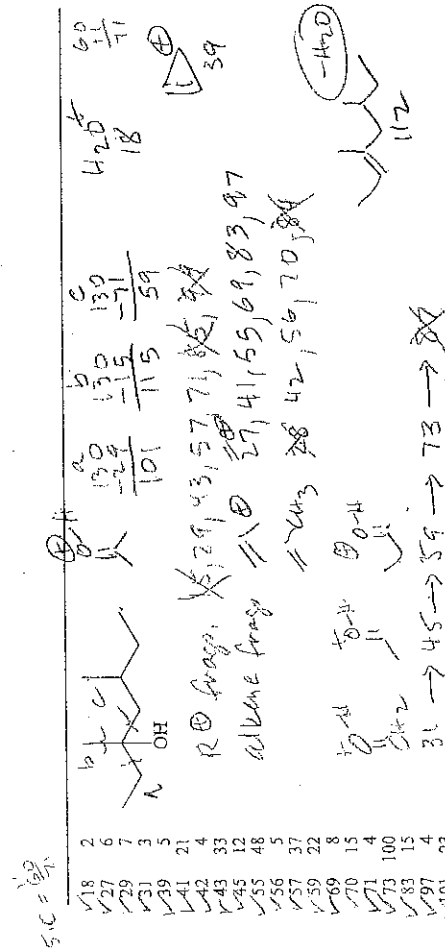 18 2
27 6
29 7
31 3
39 5
41 21
42 4
43 33
45 12
55 48
56 5
57 37
59 22
69 8
70 15
71 4
73 100
83 15
97 4
a b c
OH
a
130
-29
101
b
130
-15
115
c
130
-71
59
H2O
18
39
R⊕ frags. 15, 29, 43, 57, 71, 85, 99
alkene frags
27, 41, 55, 69, 83, 97
28 42, 56, 70, 84
O-H
CH2
O-H
O-H
31 → 45 → 59 → 73 → 87
-H2O
112